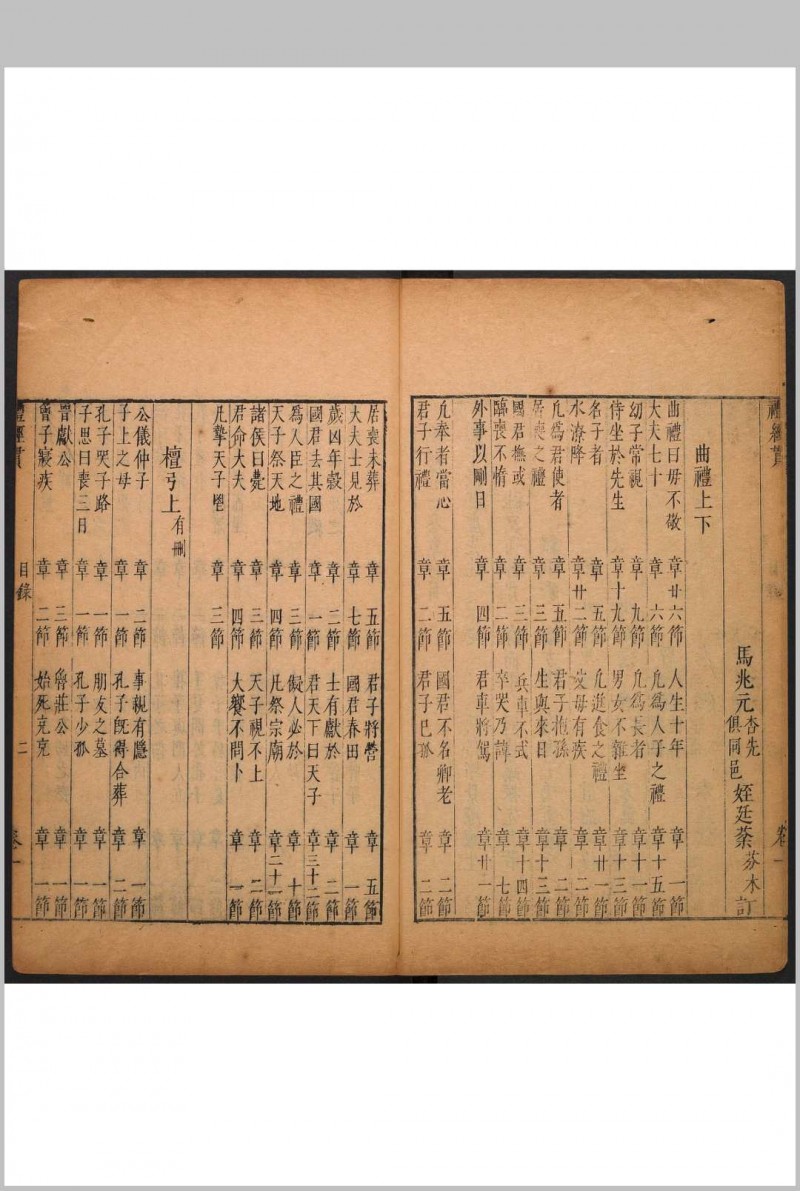 禮經貫
卷一
馬兆元杏先
俱同邑
姪廷荼芬木訂
曲禮上下
曲禮曰毋不敬 章廿六節 人生十年 章一節
大夫七十 章六節 凡爲人子之禮 章十五節
幼子常視 章九節 凡爲長者 章十一節
侍坐於先生 章十九節 男女不雜坐 章十三節
名子者 章五節 凡進食之禮 章廿一節
水潦降 章廿二節 父母有疾 章二節
凡爲君使者 章五節 君子抱孫 章三節
居喪之禮 章三節 生與來日 章十三節
國君撫式 章三節 兵車不式 章十四節
臨喪不惰 章二節 卒哭乃諱 章七節
外事以剛日 章四節 君車將駕 章廿一節
凡奉者當心 章五節 國君不名卿老 章二節
君子行禮 章二節 君子已孤 章二節
居喪未葬 章五節 君子將營 章五節
大夫士見於 章七節 國君春田 章一節
歲凶年穀 章二節 士有獻於 章二節
國君去其國 章一節 君天下曰天子 章三十二節
爲人臣之禮 章三節 儗人必於 章十節
天子祭天地 章四節 凡祭宗廟 章二十一節
諸侯曰薨 章三節 天子視不上 章二節
君命大夫 章四節 大饗不問卜 章一節
凡摯天子鬯 章三節
檀弓上有刪
公儀仲子 章二節 事親有隱 章一節
子上之母 章一節 孔子既得合葬 章二節
孔子哭子路 章一節 朋友之墓 章一節
子思曰喪三日 章一節 孔子少孤 章一節
晉獻公 章三節 魯莊公 章一節
曾子寢疾 章二節 始死充充 章一節
禮經貫
目錄
二
卷一